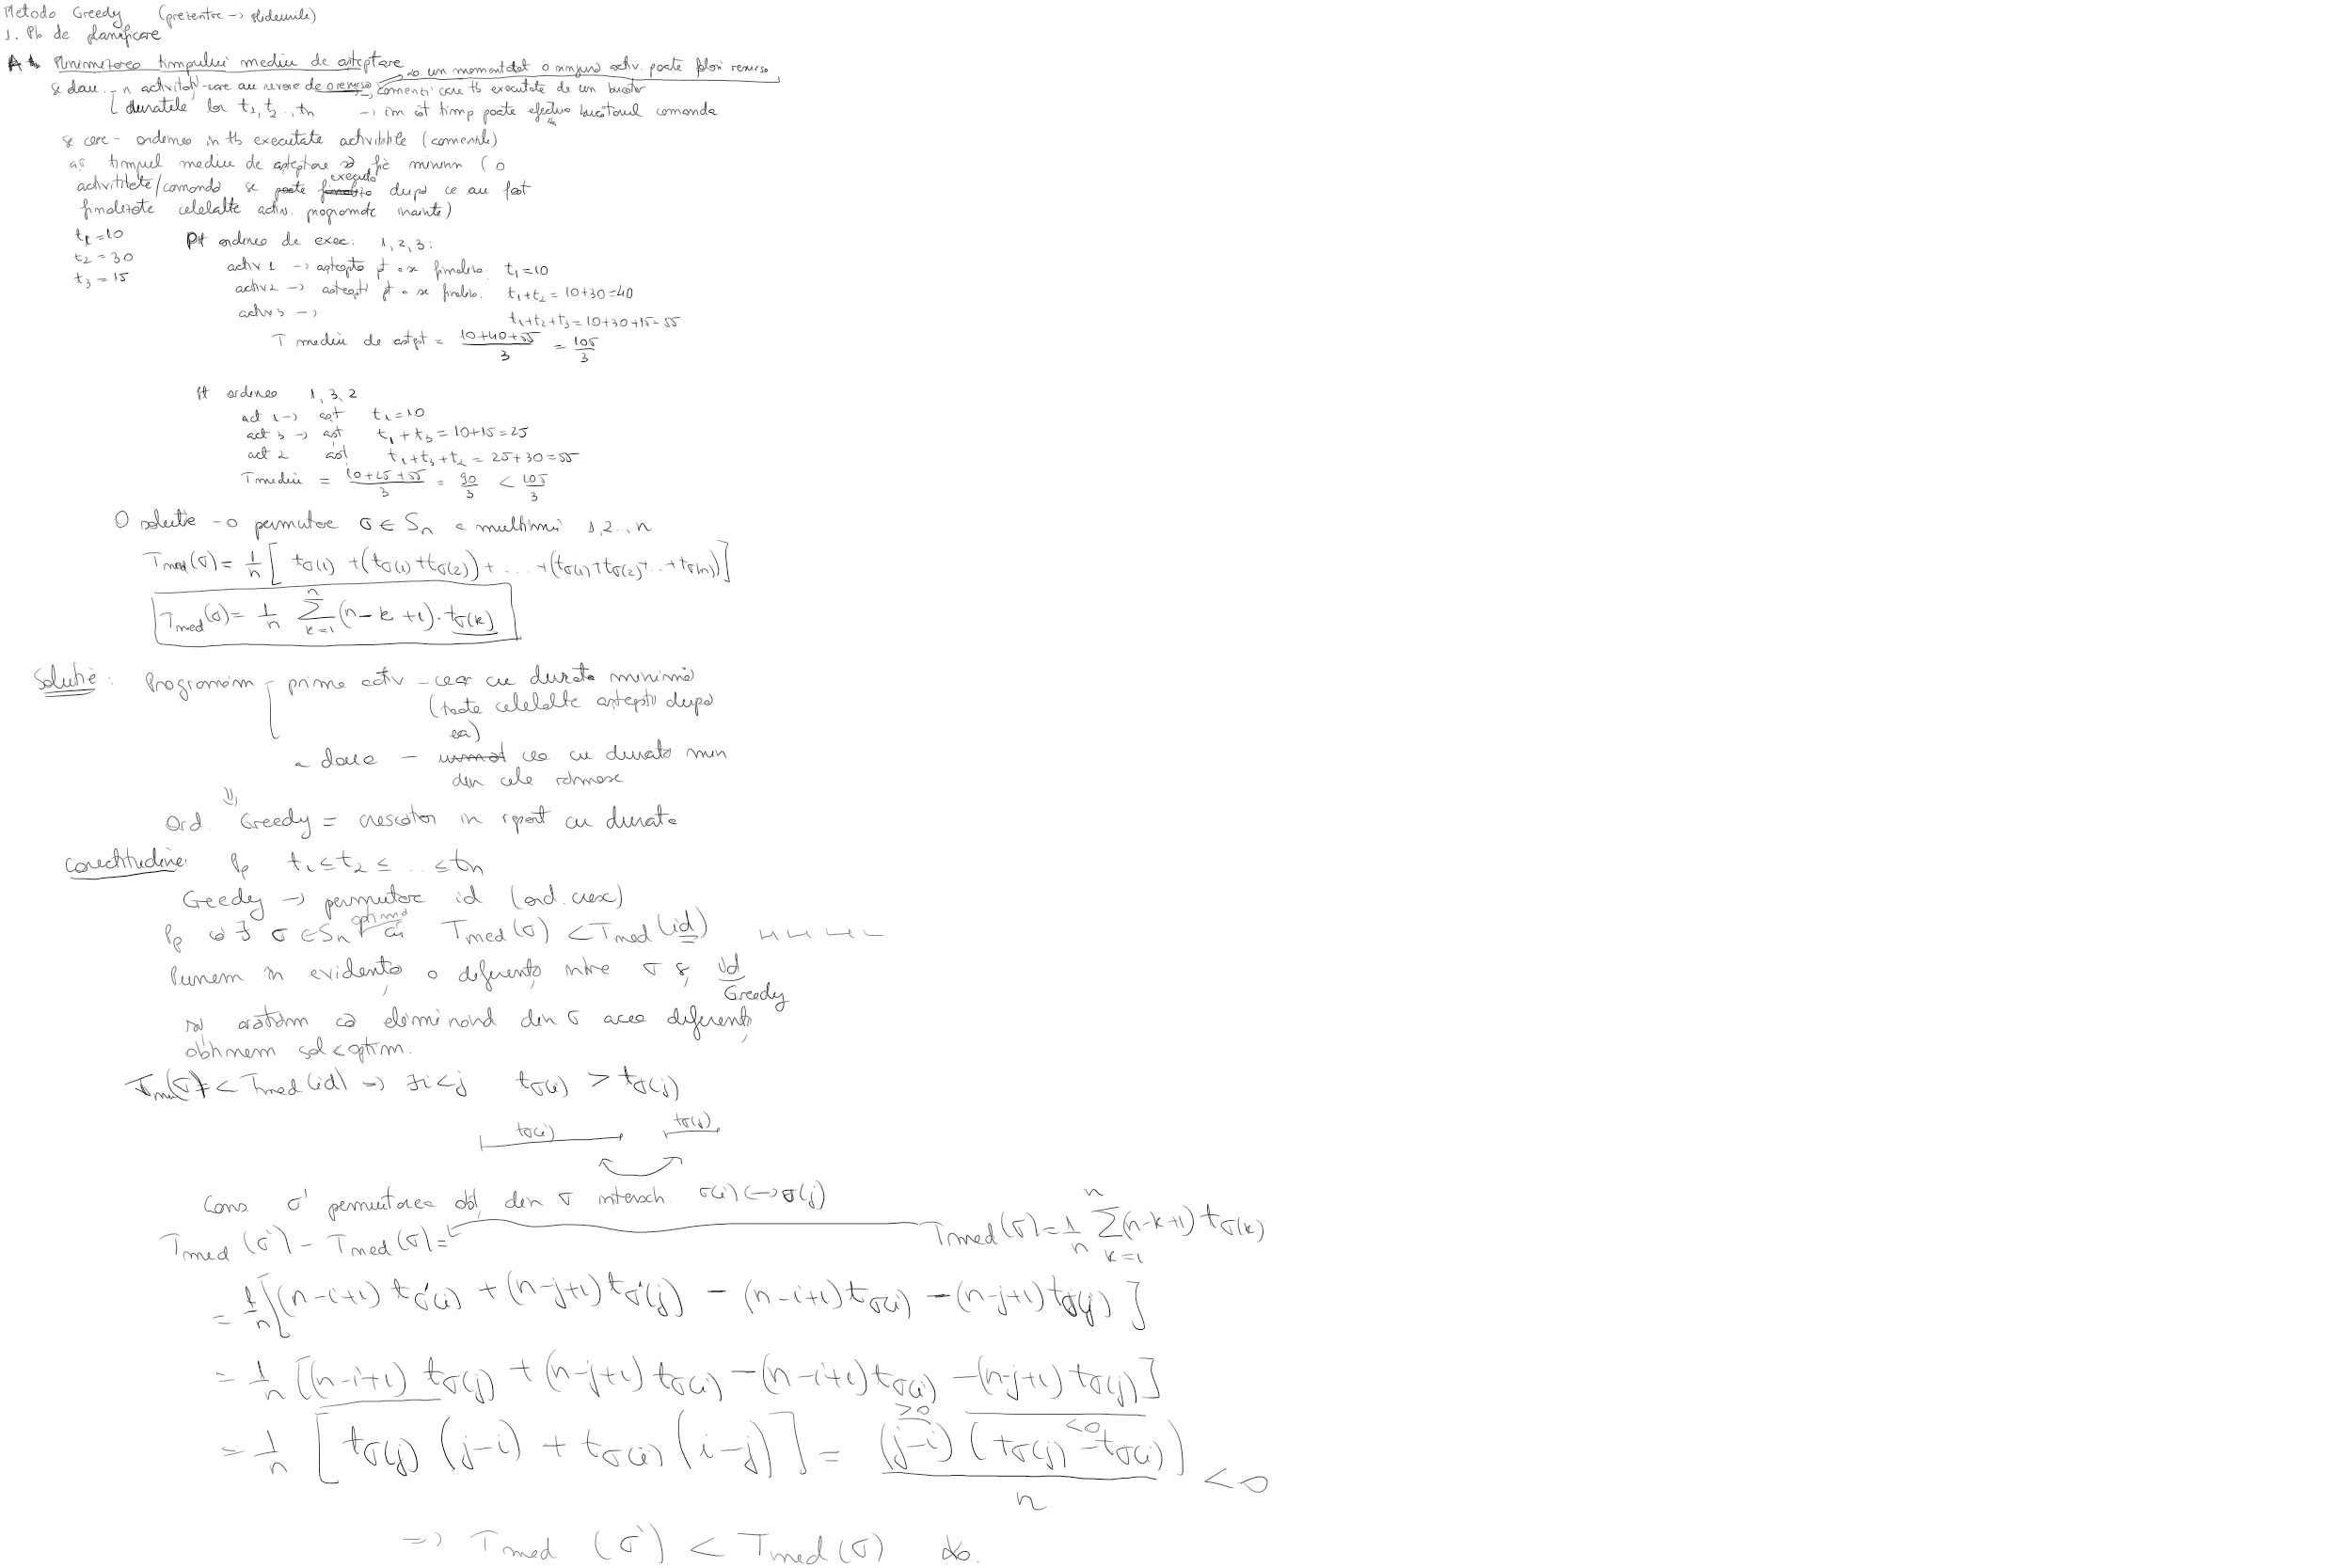 Metoda Greedy (prezentare -> slideurile)
1. Pb de planificare
A1 Minimizarea timpului mediu de așteptare
la un moment dat o singură activ. poate folosi resursa
Se dau: - n activități - care au nevoie de o resursă -> comenzi care tb executate de un bucătar
duratele lor t1, t2 ..., tn -> în cât timp poate efectua bucătarul comanda
Se cere - ordinea în tb executate activitățile (comenzile)
aî timpul mediu de așteptare să fie minim (o
activitate/comandă se execută după ce au fost
finalizate celelalte activ. programate înainte)
t1 = 10
t2 = 30
t3 = 15
Pt ordinea de exec: 1, 2, 3:
activ 1 -> așteaptă pt a se finaliza: t1 = 10
activ 2 -> așteaptă pt a se finaliza. t1+t2 = 10+30 = 40
activ 3 -> t1+t2+t3 = 10+30+15 = 55
T mediu de aștept = (10+40+55)/3 = 105/3
Pt ordinea 1, 3, 2
act 1 -> așt t1 = 10
act 3 -> așt t1 + t3 = 10+15 = 25
act 2 așt t1+t3+t2 = 25+30 = 55
T mediu = (10+25+55)/3 = 90/3 < 105/3
O soluție - o permutare σ ∈ Sn a mulțimii 1, 2 ..., n
Tmed(σ) = 1/n [ tσ(1) + (tσ(1) + tσ(2)) + ... + (tσ(1) + tσ(2) + .. + tσ(n)) ]
Tmed(σ) = 1/n Σ_{k=1}^{n} (n-k+1) · tσ(k)
Soluție: Programăm - prima activ - cea cu durata minimă
(toate celelalte așteptă după
ea)
a doua - cea cu durata min
din cele rămase
⇓
Ord. Greedy = crescător în raport cu durata
Corectitudine: Pp t1 ≤ t2 ≤ ... ≤ tn
Greedy -> permutare id (ord. cresc)
Pp că ∃ σ ∈ Sn optimă aî Tmed(σ) < Tmed(id)
Punem în evidență o diferență între σ și id
Greedy
și arătăm că eliminând din σ acea diferență
obținem sol < optim.
Tmed(σ) < Tmed(id) => ∃ i<j tσ(i) > tσ(j)
tσ(i) tσ(j)
Cons σ' permutarea obț din σ intersch. σ(i) <-> σ(j)
Tmed(σ') - Tmed(σ) = Tmed(σ) = 1/n Σ_{k=1}^{n} (n-k+1) tσ(k)
= 1/n [(n-i+1) tσ'(i) + (n-j+1) tσ'(j) - (n-i+1) tσ(i) - (n-j+1) tσ(j)]
= 1/n [(n-i+1) tσ(j) + (n-j+1) tσ(i) - (n-i+1) tσ(i) - (n-j+1) tσ(j)]
>0 <0
= 1/n [ tσ(j) (j-i) + tσ(i) (i-j) ] = (j-i) (tσ(j) - tσ(i)) / n < 0
=> Tmed(σ') < Tmed(σ)